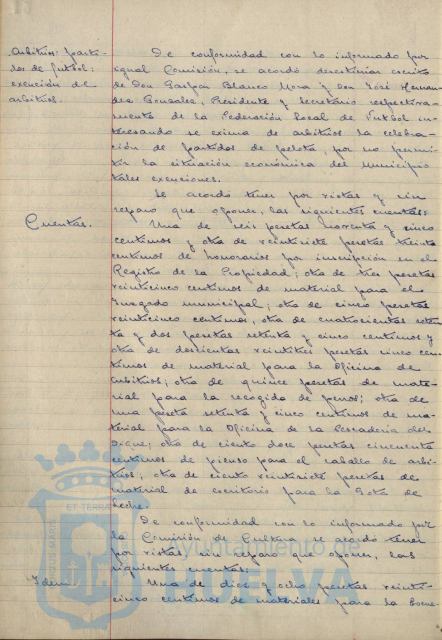 Arbitrios: parti-
dos de futbol:
exención del
arbitrio.
De conformidad con lo informado por
igual Comisión, se acordó desestimar escrito
de Don Gaspar Blanco Mora y don José Hernan-
dez Gonzalez, Presidente y Secretario respectiva-
mente de la Federación local de Futbol in-
teresando se exima de arbitrios la celebra-
ción de partidos de pelota, por no permi-
tir la situación económica del Municipio
tales exenciones.
Se acordó tener por vistas y sin
reparo que oponer, las siguientes cuentas:
Cuentas.
Una de seis pesetas noventa y cinco
centimos y otra de veintisiete pesetas treinta
centimos de honorarios por inscripción en el
Registro de la Propiedad; otra de tres pesetas
veinticinco centimos de material para el
Juzgado municipal; otra de cinco pesetas
veinticinco centimos, otra de cuatrocientas seten-
ta y dos pesetas setenta y cinco centimos y
otra de doscientas veintitres pesetas cinco cen-
timos de material para la Oficina de
Arbitrios; otra de quince pesetas de mate-
rial para la recogida de perros; otra de
una peseta setenta y cinco centimos de ma-
terial para la Oficina de la Pescaderia del
Dique; otra de ciento doce pesetas cincuenta
centimos de pienso para el caballo de arbi-
trios; otra de ciento veintisiete pesetas de
material de escritorio para la Gota de
leche.
De conformidad con lo informado por
la Comisión de Cultura se acordó tener
por vistas, sin reparo que oponer, las
siguientes cuentas:
Idem
Una de diez y ocho pesetas veinti-
cinco centimos de materiales para la Escue-
ET TERRAE
PORTUS MARIS
Ayuntamiento de
HUELVA